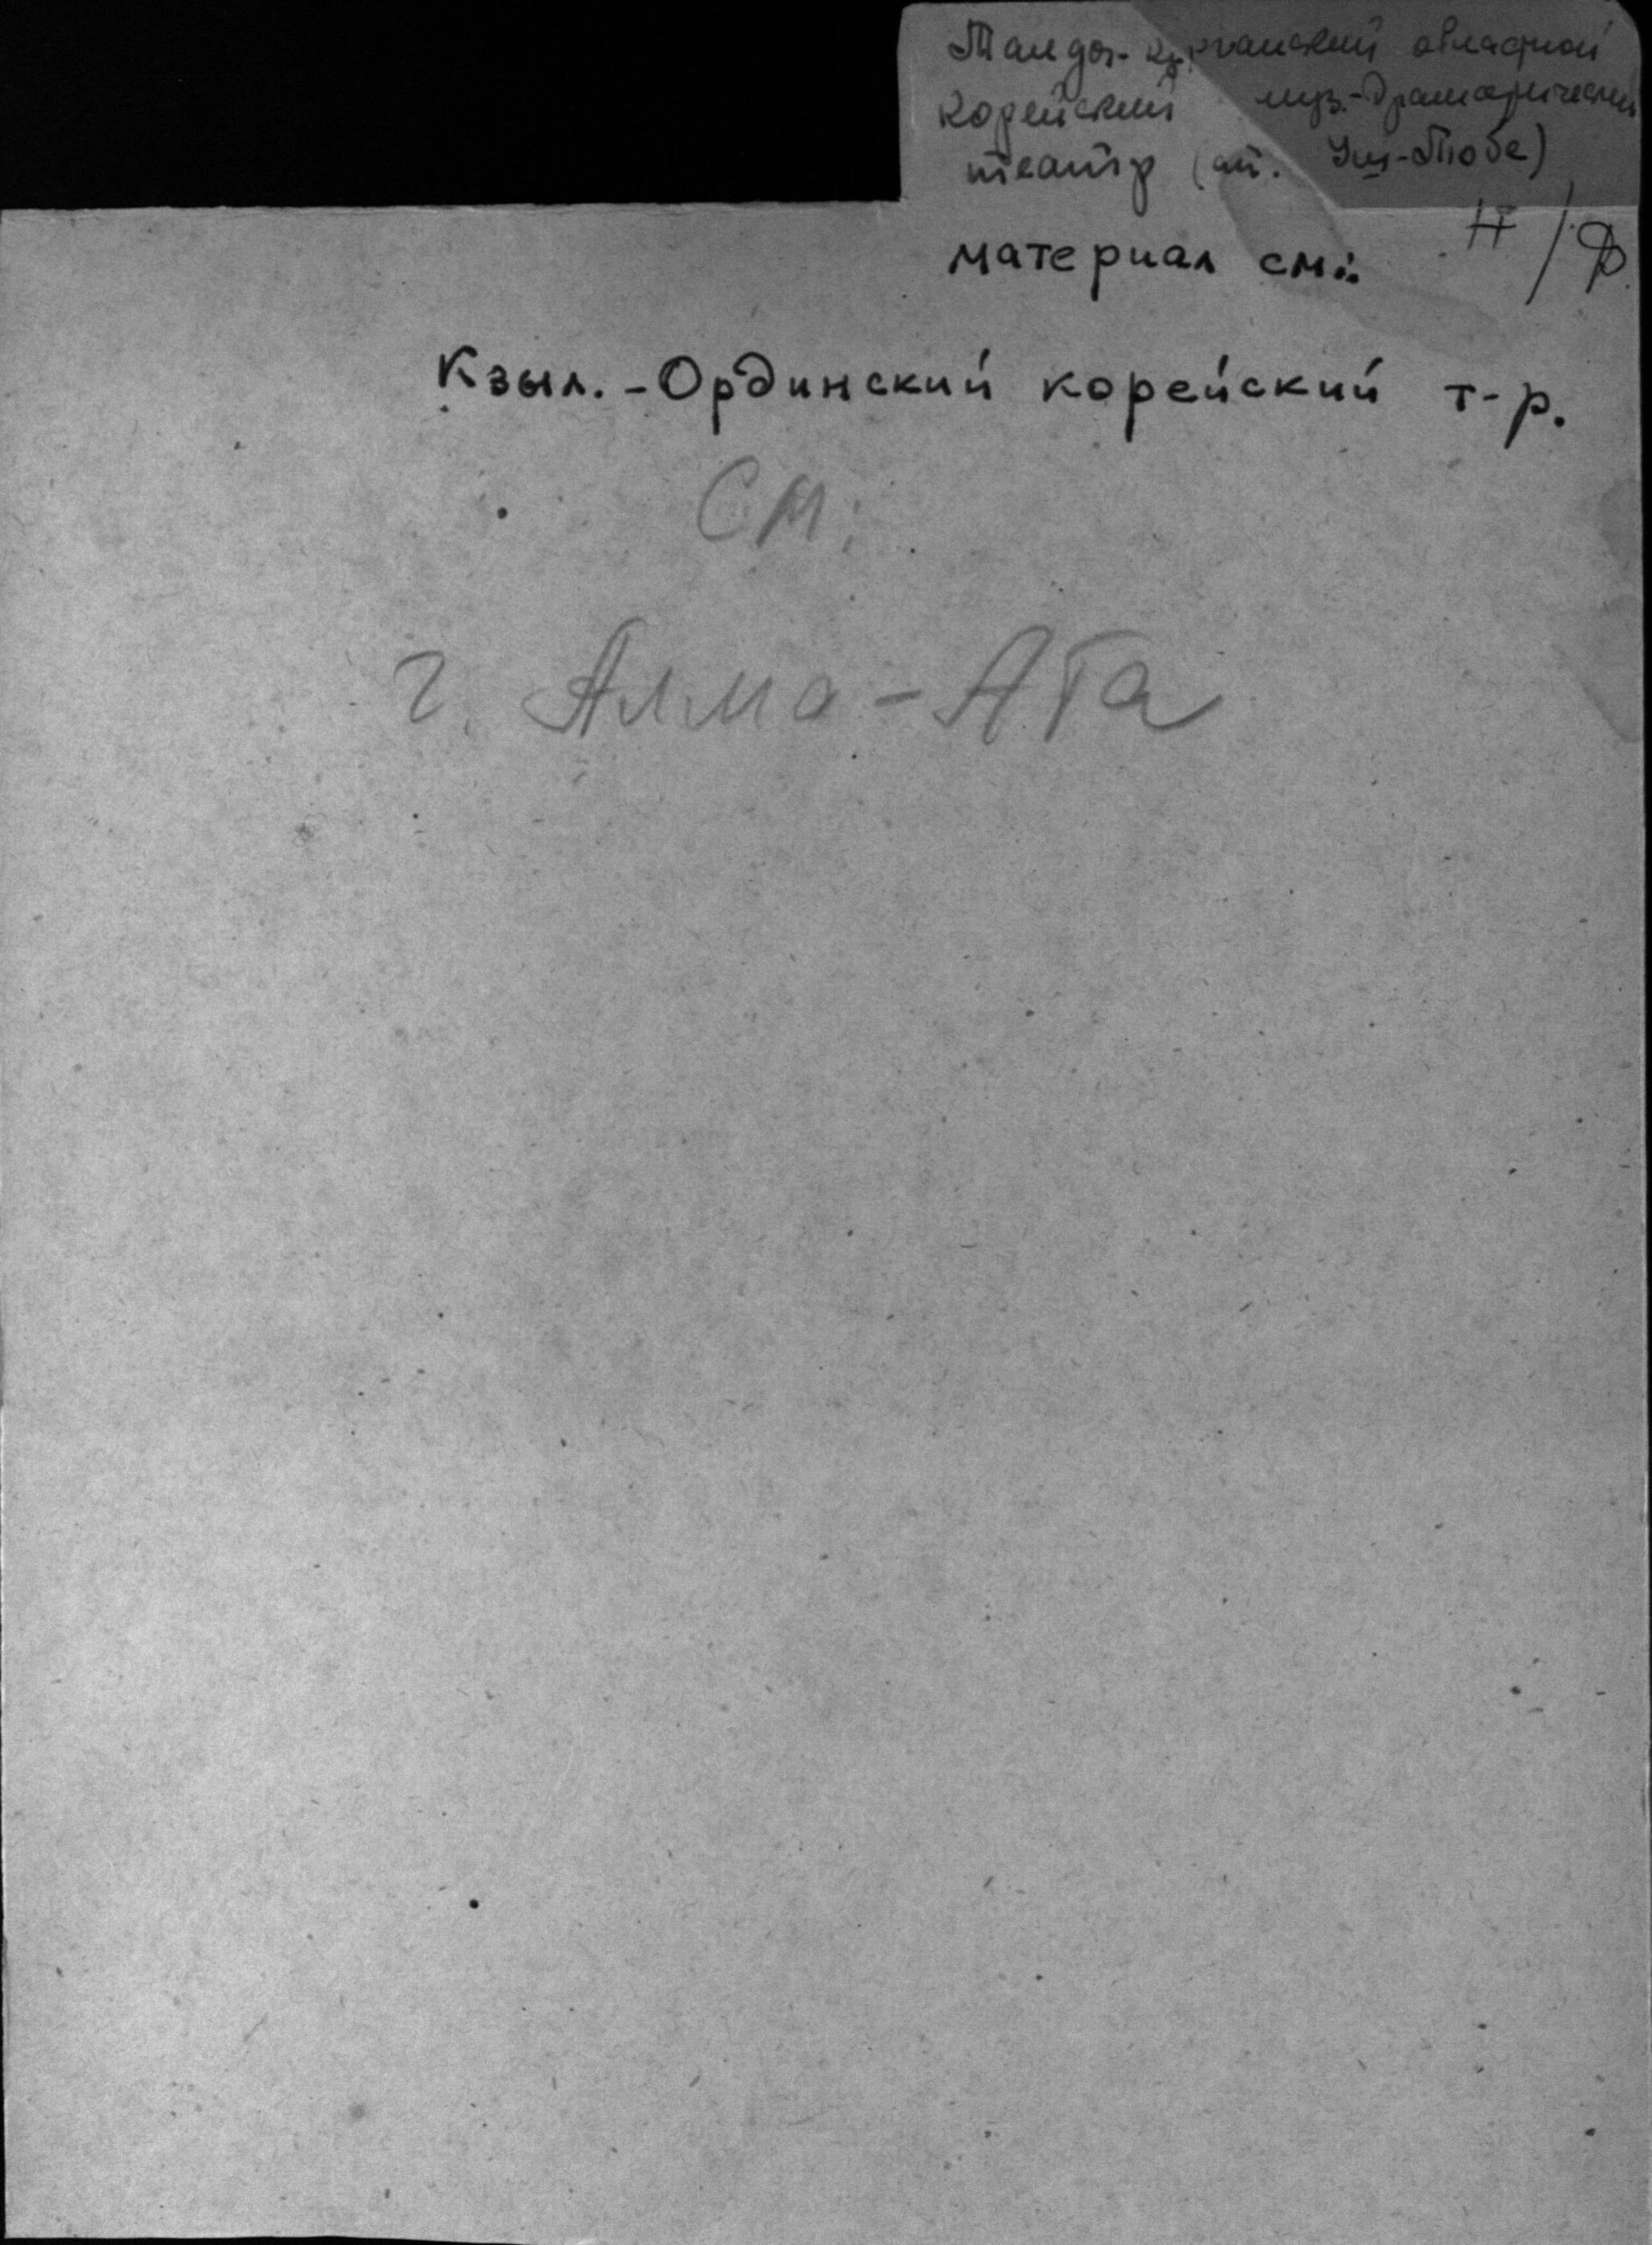 Талды-Курганский областной
Корейский муз.-драматический
театр (ст. Уш-Тобе)
Н/Д
материал см.:
Кзыл.-Ординский корейский т-р.
См:
г. Алма-Ата